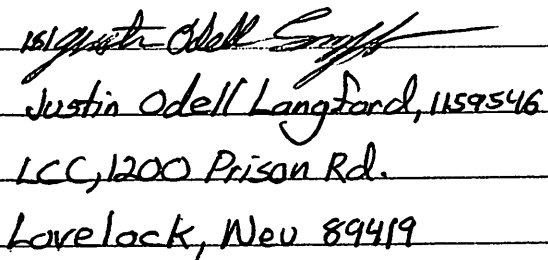 /s/ Justin Odell Langford
Justin Odell Langford, 1159546
LCC, 1200 Prison Rd.
Lovelock, Nev 89419